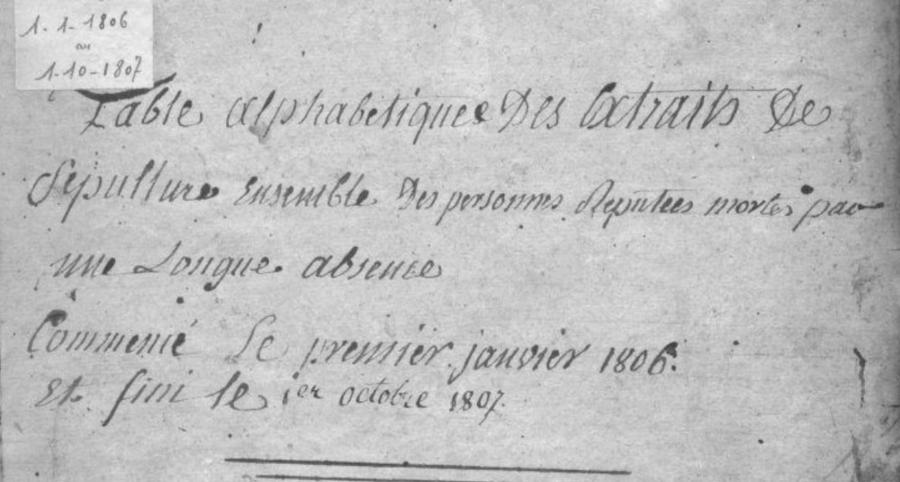 1-1-1806
au
1-10-1807
Table alphabetique Des Extraits De
Sepulture Ensemble Des personnes Reputées mortes par
une Longue absence
Commencé Le premier janvier 1806.
Et fini le 1er octobre 1807.